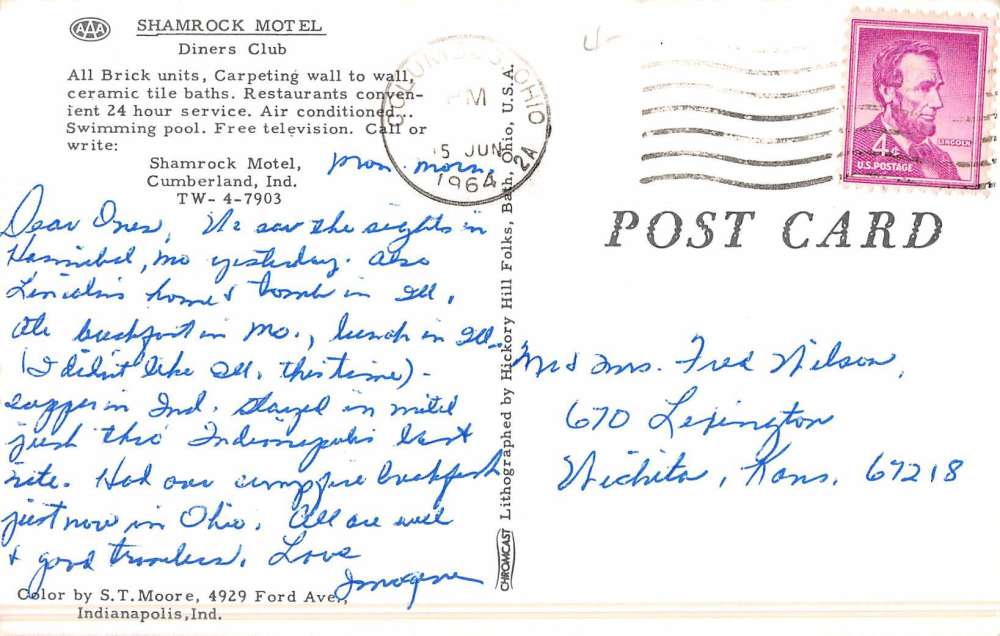 AAA
SHAMROCK MOTEL
Diners Club
All Brick units, Carpeting wall to wall,
ceramic tile baths. Restaurants conven-
ient 24 hour service. Air conditioned...
Swimming pool. Free television. Call or
write:
Shamrock Motel,
Cumberland, Ind.
TW- 4-7903
Mon morn.
Dear Ones, We saw the sights in
Hannibal, Mo yesterday. Also
Lincoln's home & tomb in Ill.
Ate breakfast in Mo., lunch in Ill.
(I didn't like Ill. this time) -
supper in Ind. Stayed in motel
just this Indianapolis last
nite. Had our campfire breakfast
just now in Ohio. All are well
& good travelers. Love
Imogene
Color by S.T. Moore, 4929 Ford Ave.,
Indianapolis, Ind.
CHROMCAST Lithographed by Hickory Hill Folks, Bath, Ohio, U.S.A.
COLUMBUS, OHIO
PM
15 JUN
1964
2A
4¢
LINCOLN
U.S. POSTAGE
POST CARD
Mr & Mrs. Fred Wilson,
670 Lexington
Wichita, Kans. 67218